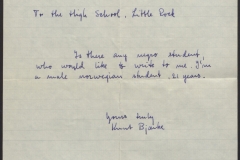 To the High School, Little Rock
Is there any negro student,
who would like to write to me. I'm
a male norwegian student. 21 years.
Yours truly
Knut Bjaake